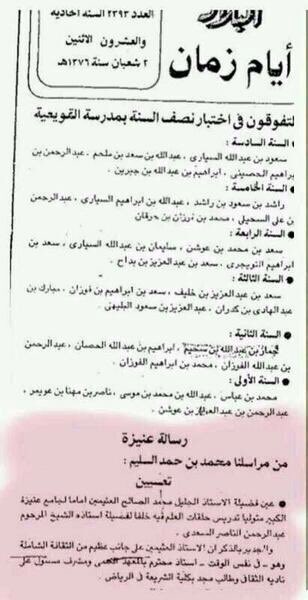 البلاد
العدد ٢٣٩٣ السنة الحادية
والعشرون الاثنين
٢ شعبان سنة ١٣٧٦هـ
أيام زمان
لتفوقون فى اختبار نصف السنة بمدرسة القويعية
السنة السادسة :
سعود بن عبدالله السيارى ، عبدالله بن سعد بن ملحم ، عبدالرحمن بن
براهيم الحصينى ، ابراهيم بن عبدالله بن جبرين .
السنة الخامسة :
راشد بن سعود بن راشد ، عبدالله بن ابراهيم السيارى ، عبدالرحمن
ن على السحيلى ، محمد بن فوزان بن حرقان
السنة الرابعة :
سعد بن محمد بن عوشن ، سليمان بن عبدالله السيارى ، سعد بن
ابراهيم التويجرى ، سعد بن عبدالعزيز بن بداح .
السنة الثالثة :
سعد بن عبدالعزيز بن خليف ، سعد بن ابراهيم بن فوزان ، مبارك بن
عبدالهادى بن كدران ، عبدالعزيز بن سعود البليهى .
السنة الثانية :
بن عبدالله بن سحيم ، ابراهيم بن عبدالله الحصان ، عبدالرحمن
بن عبدالله الفوزان ، محمد بن ابراهيم الفوزان
السنة الأولى :
محمد بن عباس ، عبدالله بن محمد بن موسى ، ناصر بن مهنا بن عويمر ،
عبدالرحمن بن عبدالعزيز بن عوشن
رسالة عنيزة
من مراسلنا محمد بن حمد السليم :
تعيين
عين فضيلة الاستاذ الجليل محمد الصالح العثيمين اماما لجامع عنيزة
الكبير متوليا تدريس حلقات العلم فيه خلفا لفضيلة استاذه الشيخ المرحوم
عبدالرحمن الناصر السعدى .
والجدير بالذكر ان الاستاذ العثيمين على جانب عظيم من الثقافة الشاملة
وهو - فى نفس الوقت - استاذ محترم بالمعهد العلمى ومشرف مسئول على
ناديه الثقافى وطالب مجد بكلية الشريعة فى الرياض .